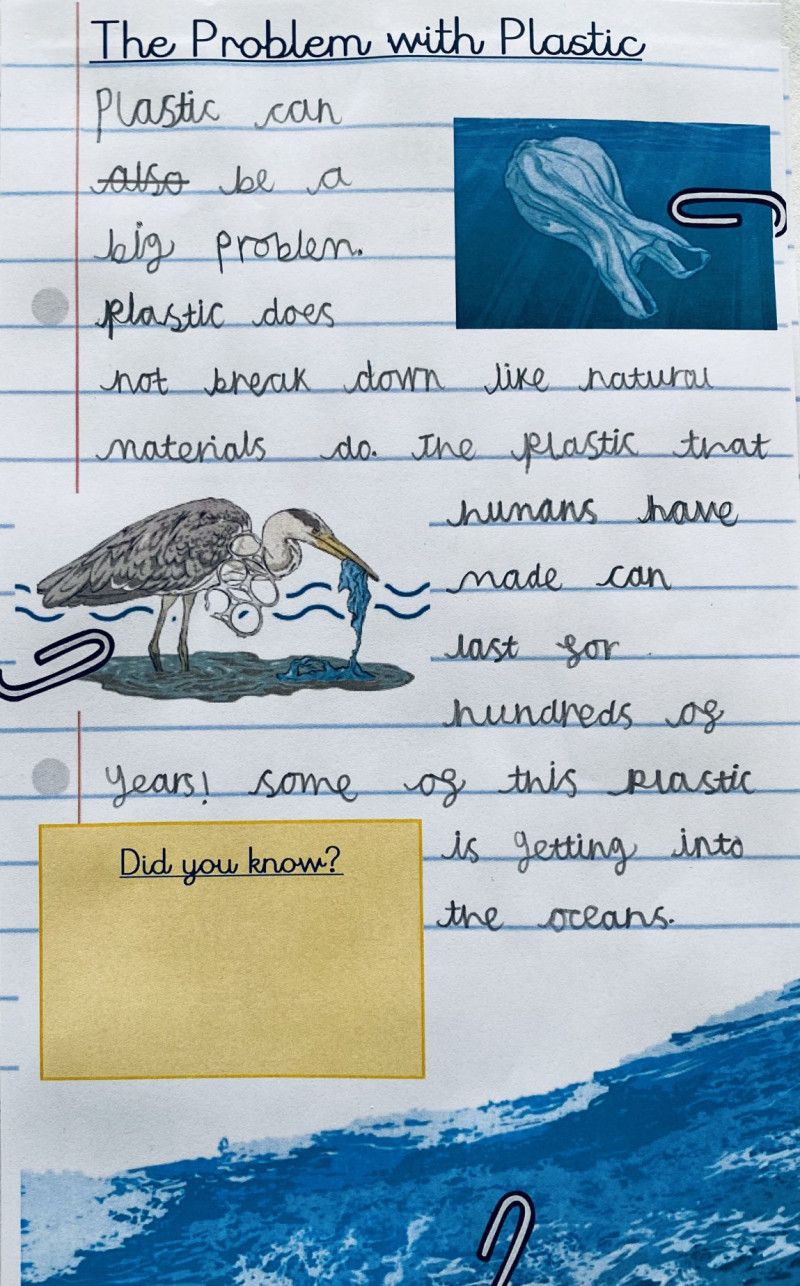 The Problem with Plastic
Plastic can
~~also~~ be a
big problem.
plastic does
not break down like natural
materials do. The plastic that
humans have
made can
last for
hundreds of
years! some of this plastic
is getting into
the oceans.
Did you know?